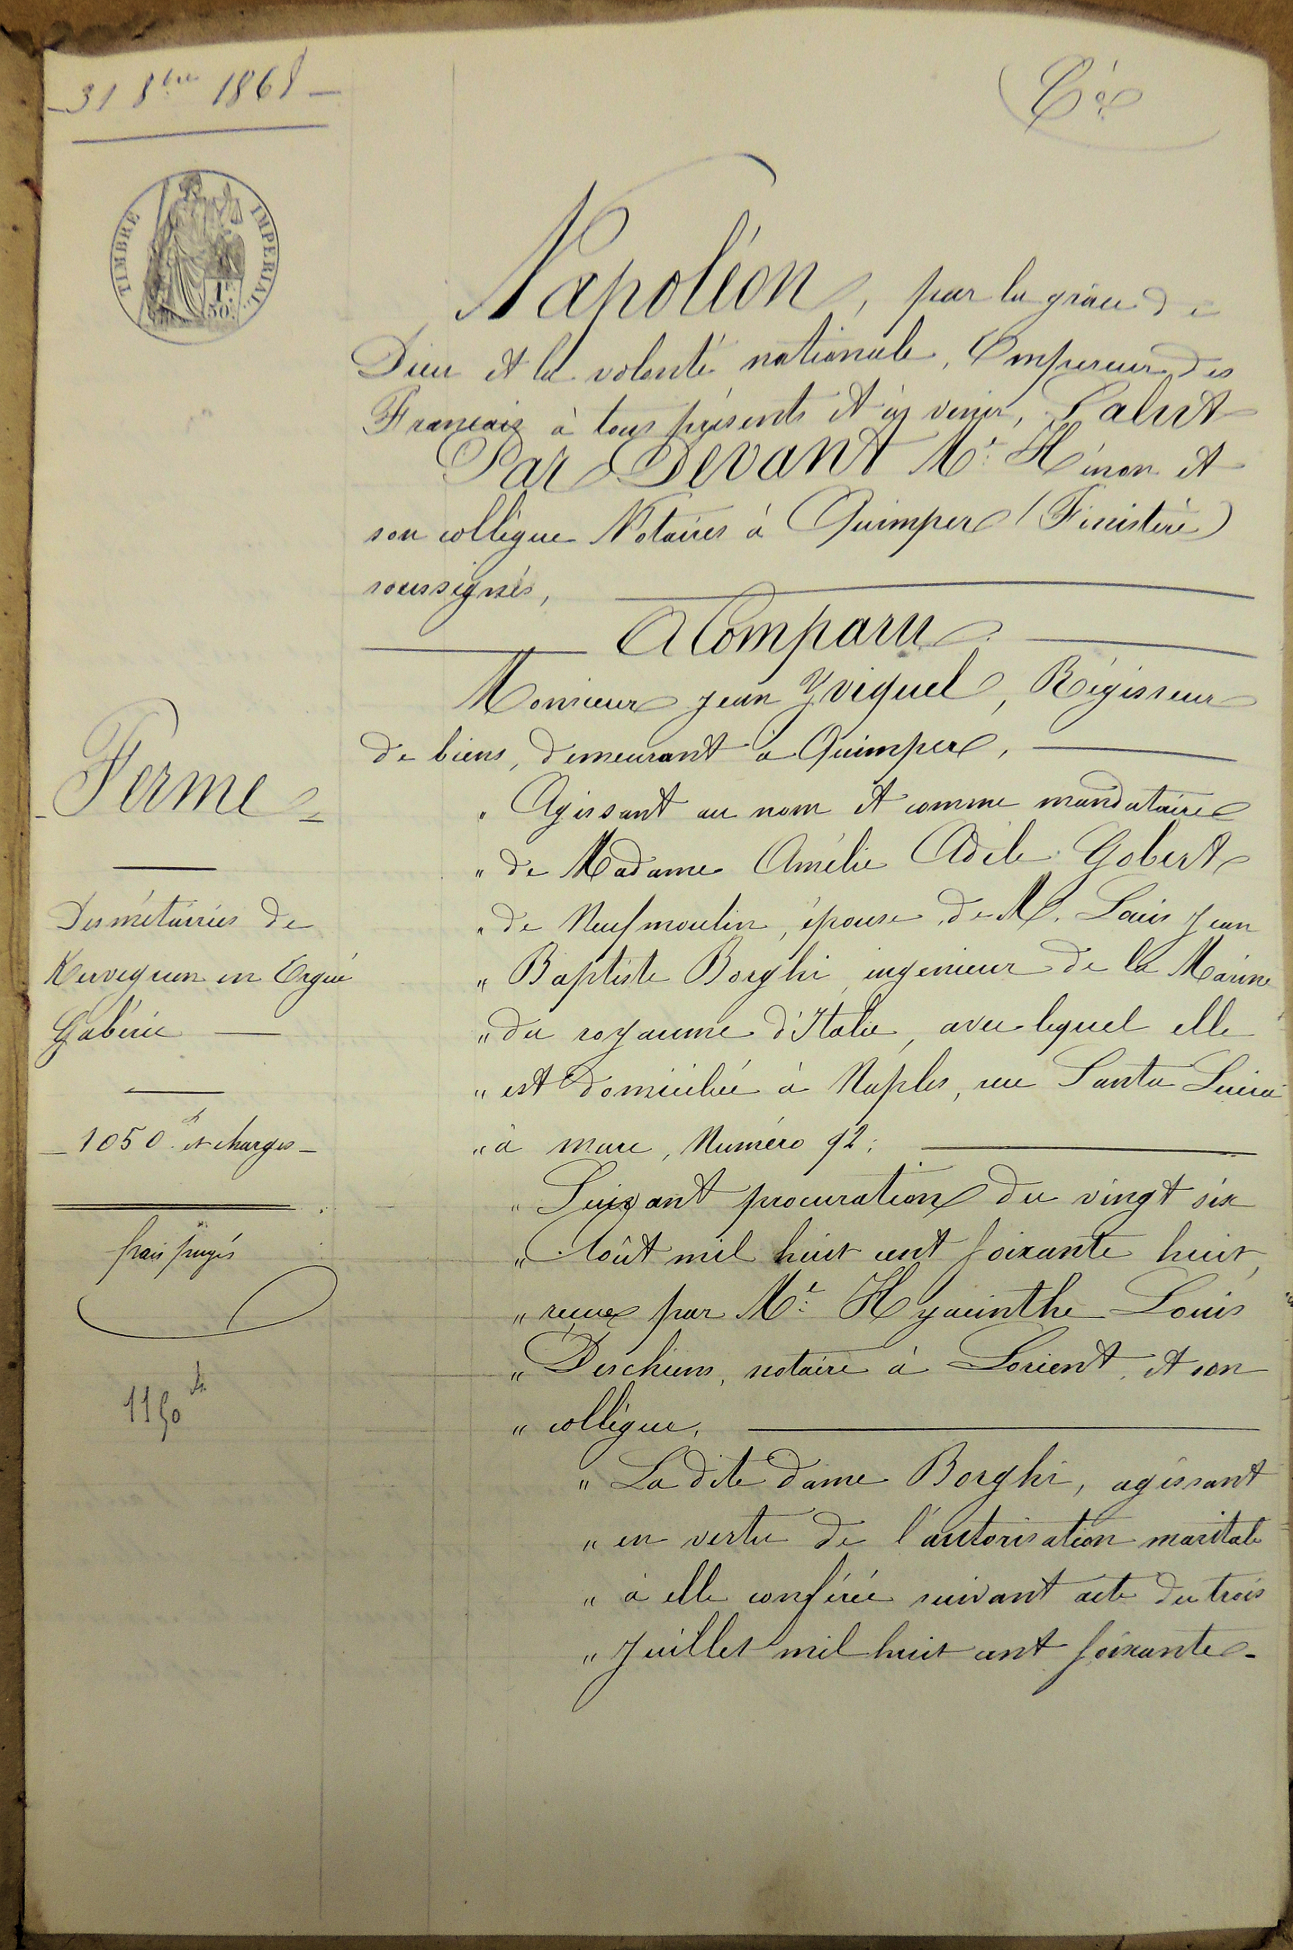 31 8bre 1868
TIMBRE IMPERIAL
1F
50c
Napoléon, par la grâce de
Dieu et la volonté nationale, Empereur des
Français à tous présents et à venir, Salut
Par Devant Me Hénon et
son collègue Notaires à Quimper (Finistère)
soussignés,
A Comparu
Monsieur Jean Yviquel, Régisseur
de biens, demeurant à Quimper,
Ferme
Des métairies de
Kerveguen en Ergué
Gabéric
1050 f et charges
frais payés
1150 f
" Agissant au nom et comme mandataire
" de Madame Amélie Adèle Gobert
" de Neufmoulin, épouse de M. Louis Jean
" Baptiste Borghi, ingénieur de la Marine
" du royaume d'Italie, avec lequel elle
" est domiciliée à Naples, rue Santa Lucia
" à mare, Numéro 92;
" Suivant procuration du vingt six
" Août mil huit cent soixante huit,
" reçue par Me Hyacinthe Louis
" Deschiens, notaire à Lorient, et son
" collègue,
" La dite dame Borghi, agissant
" en vertu de l'autorisation maritale
" à elle conférée suivant acte du trois
" Juillet mil huit cent soixante-